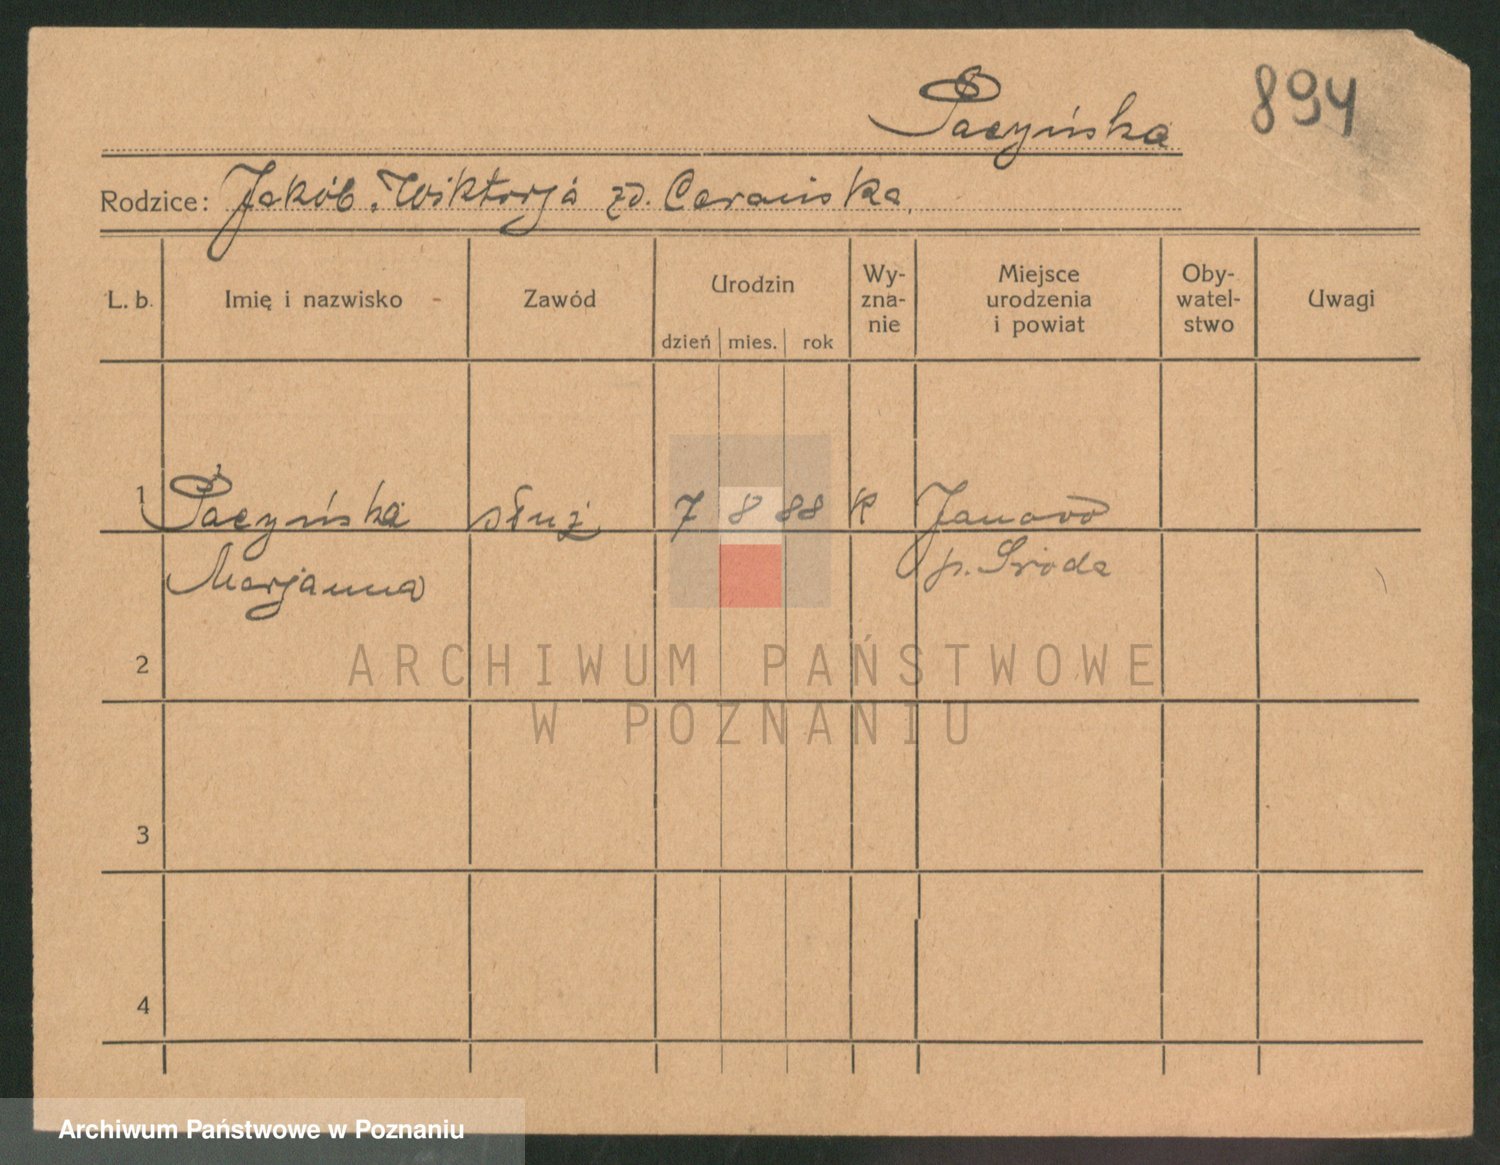 Paczyńska
894
Rodzice: Jakób, Wiktorja zd.
L. b. Imię i nazwisko Zawód Urodzin Wy-zna-nie Miejsce urodzenia i powiat Oby-watel-stwo Uwagi
dzień mies. rok
1 Paczyńska służ 7 8 88 k Janowo
Marjanna p. Środa
2
3
4
ARCHIWUM PAŃSTWOWE
W POZNANIU
Archiwum Państwowe w Poznaniu